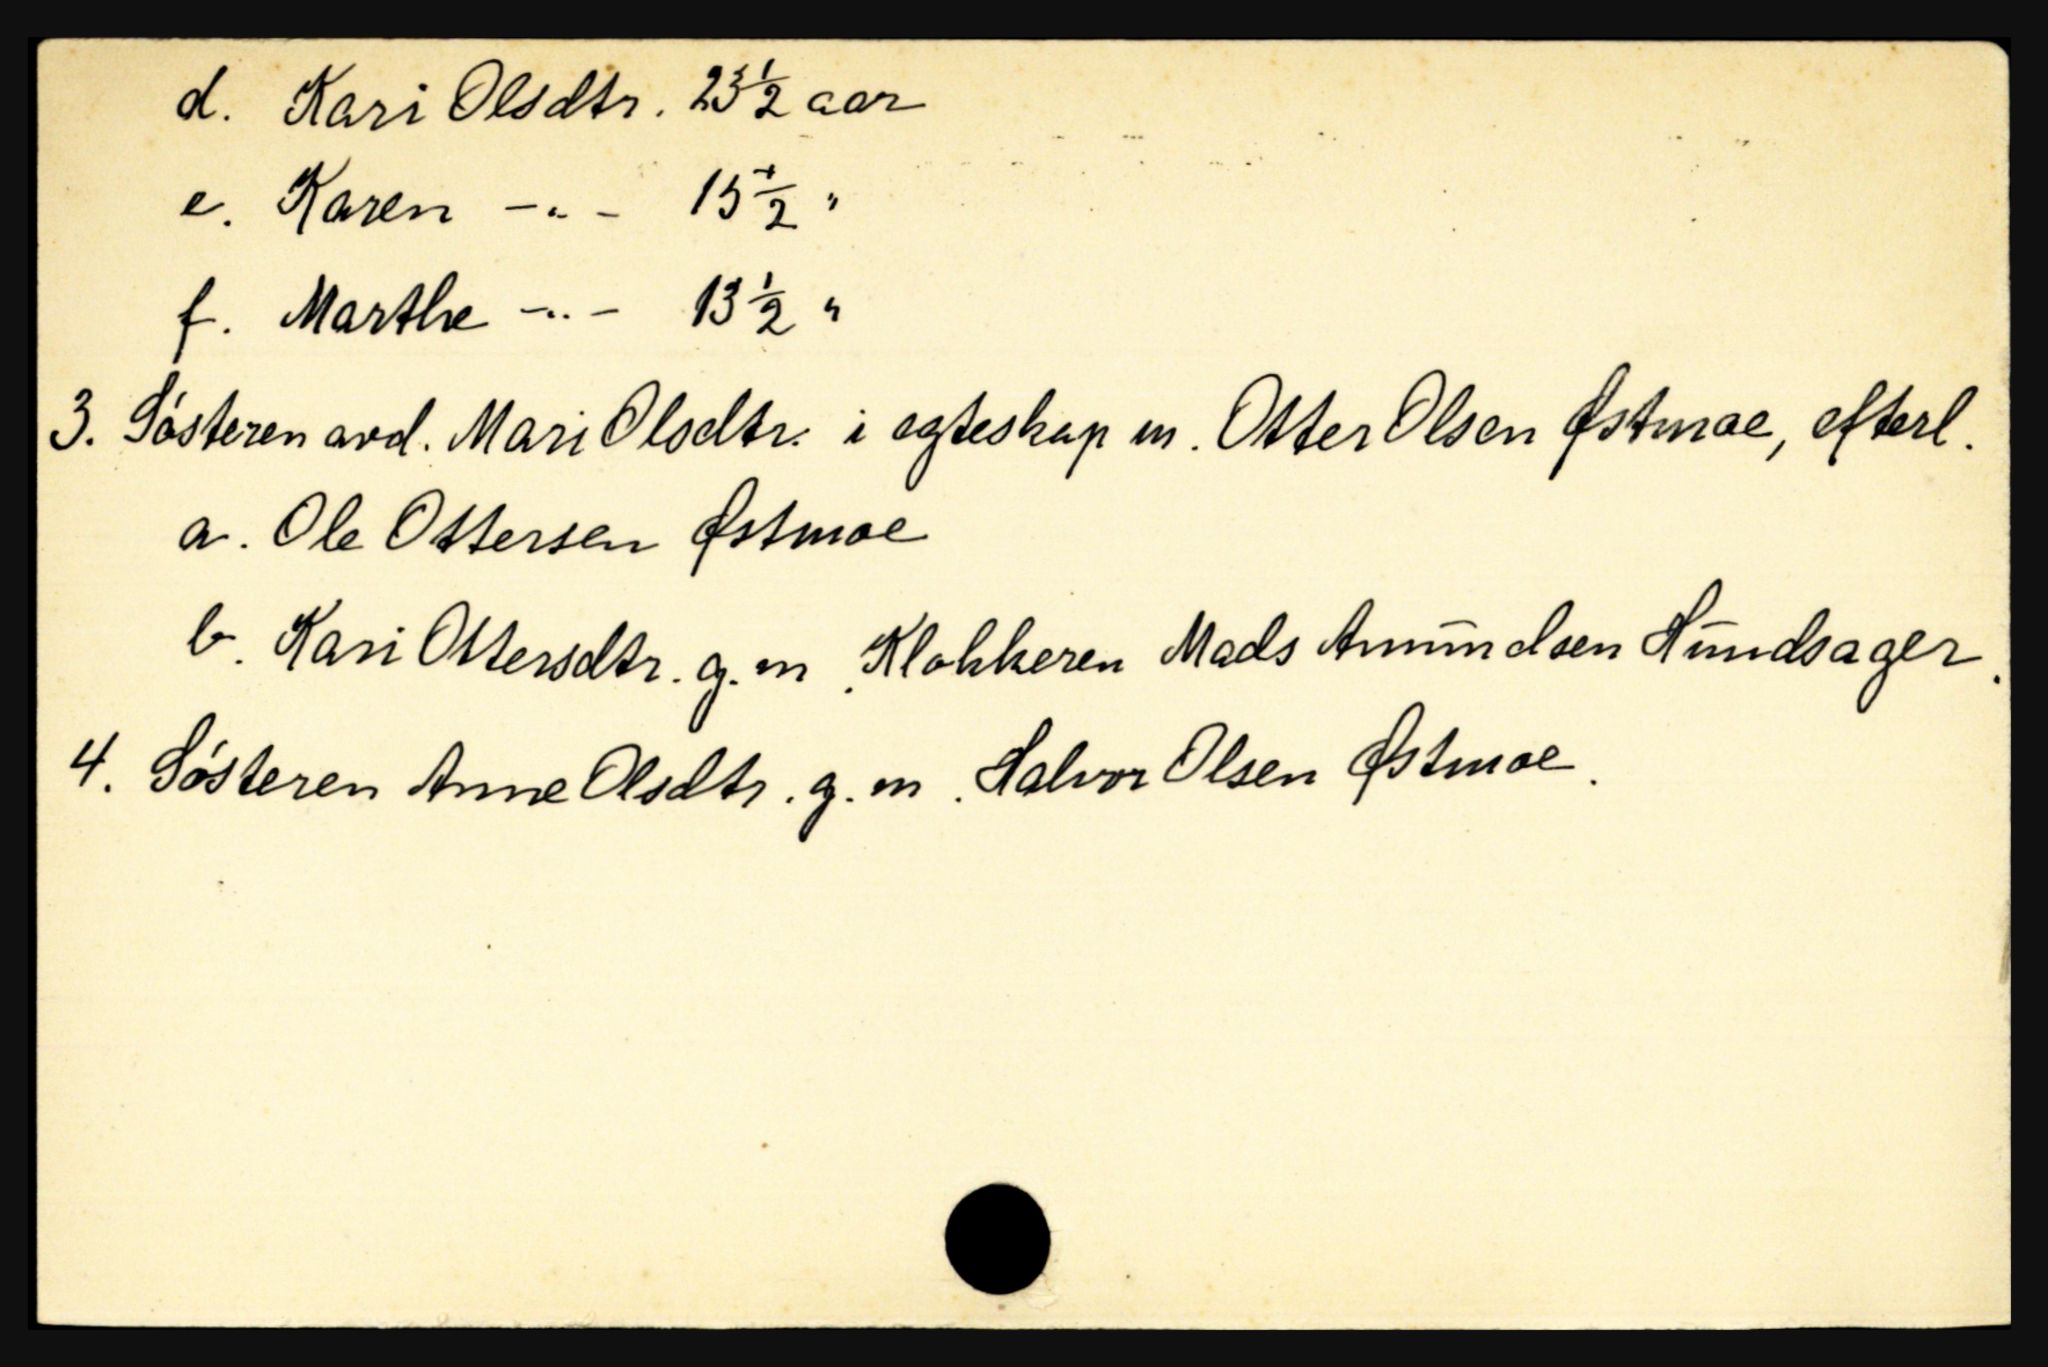 d. Kari Olsdtr. 23 1/2 aar
e. Karen -"- 15 1/2 "
f. Marthe -"- 13 1/2 "
3. Søsteren avd. Mari Olsdtr. i egteskap m. Otter Olsen Østmoe, efterl.
a. Ole Ottersen Østmoe
b. Kari Ottersdtr. g. m. Klokkeren Mads Amundsen Hundsager.
4. Søsteren Anne Olsdtr. g. m. Halvor Olsen Østmoe.